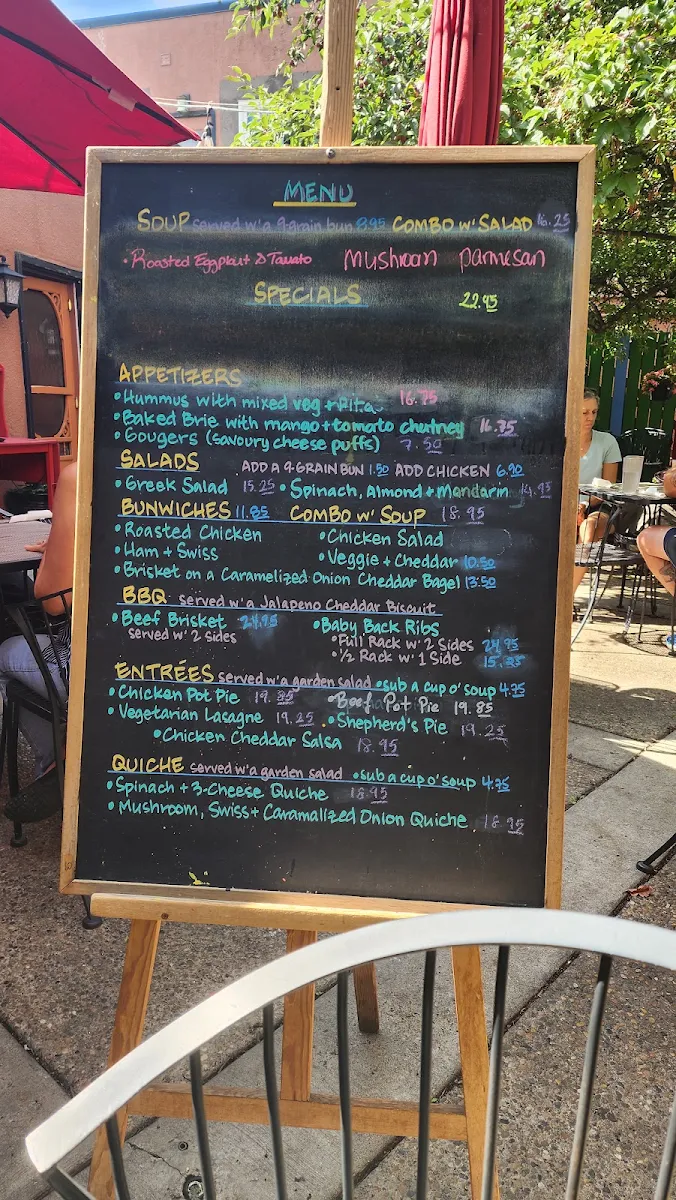 MENU
SOUP served w'a 9-grain bun 8.95 COMBO W' SALAD 16.25
• Roasted Eggplant & Tomato Mushroom Parmesan
SPECIALS 22.95
APPETIZERS
• Hummus with mixed veg + Pita 16.75
• Baked Brie with mango + tomato chutney 16.75
• Gougers (savoury cheese puffs) 7.50
SALADS ADD A 9-GRAIN BUN 1.50 ADD CHICKEN 6.90
• Greek Salad 15.25 • Spinach, Almond + Mandarin 14.95
BUNWICHES 11.85 COMBO W' SOUP 18.95
• Roasted Chicken • Chicken Salad
• Ham + Swiss • Veggie + Cheddar 10.50
• Brisket on a Caramelized Onion Cheddar Bagel 13.50
BBQ served w'a Jalapeno Cheddar Biscuit
• Beef Brisket 24.95 • Baby Back Ribs
served w' 2 sides • Full Rack w' 2 Sides 29.95
• 1/2 Rack w' 1 Side
ENTRÉES served w'a garden salad • sub a cup o' soup 4.75
• Chicken Pot Pie 19.85 • Beef Pot Pie 19.85
• Vegetarian Lasagne 19.25 • Shepherd's Pie 19.25
• Chicken Cheddar Salsa 18.95
QUICHE served w'a garden salad • sub a cup o' soup 4.75
• Spinach + 3-Cheese Quiche 18.95
• Mushroom, Swiss + Caramalized Onion Quiche 18.95